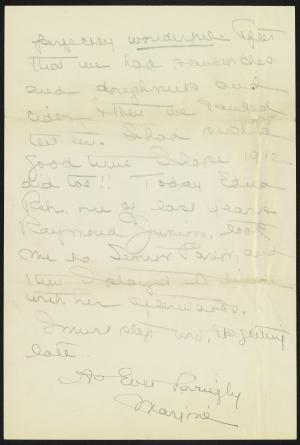 perfectly wonderful. After
that we had sandwiches
and doughnuts and
cider, & then we danced
till ten. I had such a
good time I hope 1912
did too!! Today Edna
one of last years
Raymond Juniors, took
me to Senior Parlor, and
I stayed to dinner
with her afterwards.
I must stop now, its getting
late.
As Ever Lovingly
Marjorie